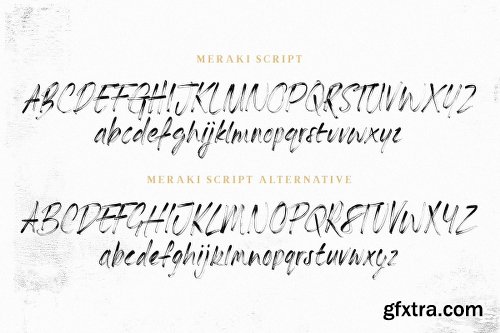 MERAKI SCRIPT
ABCDEFGHIJKLMNOPQRSTUVWXYZ
abcdefghijklmnopqrstuvwxyz
MERAKI SCRIPT ALTERNATIVE
ABCDEFGHIJKLMNOPQRSTUVWXYZ
abcdefghijklmnopqrstuvwxyz
gfxtra.com